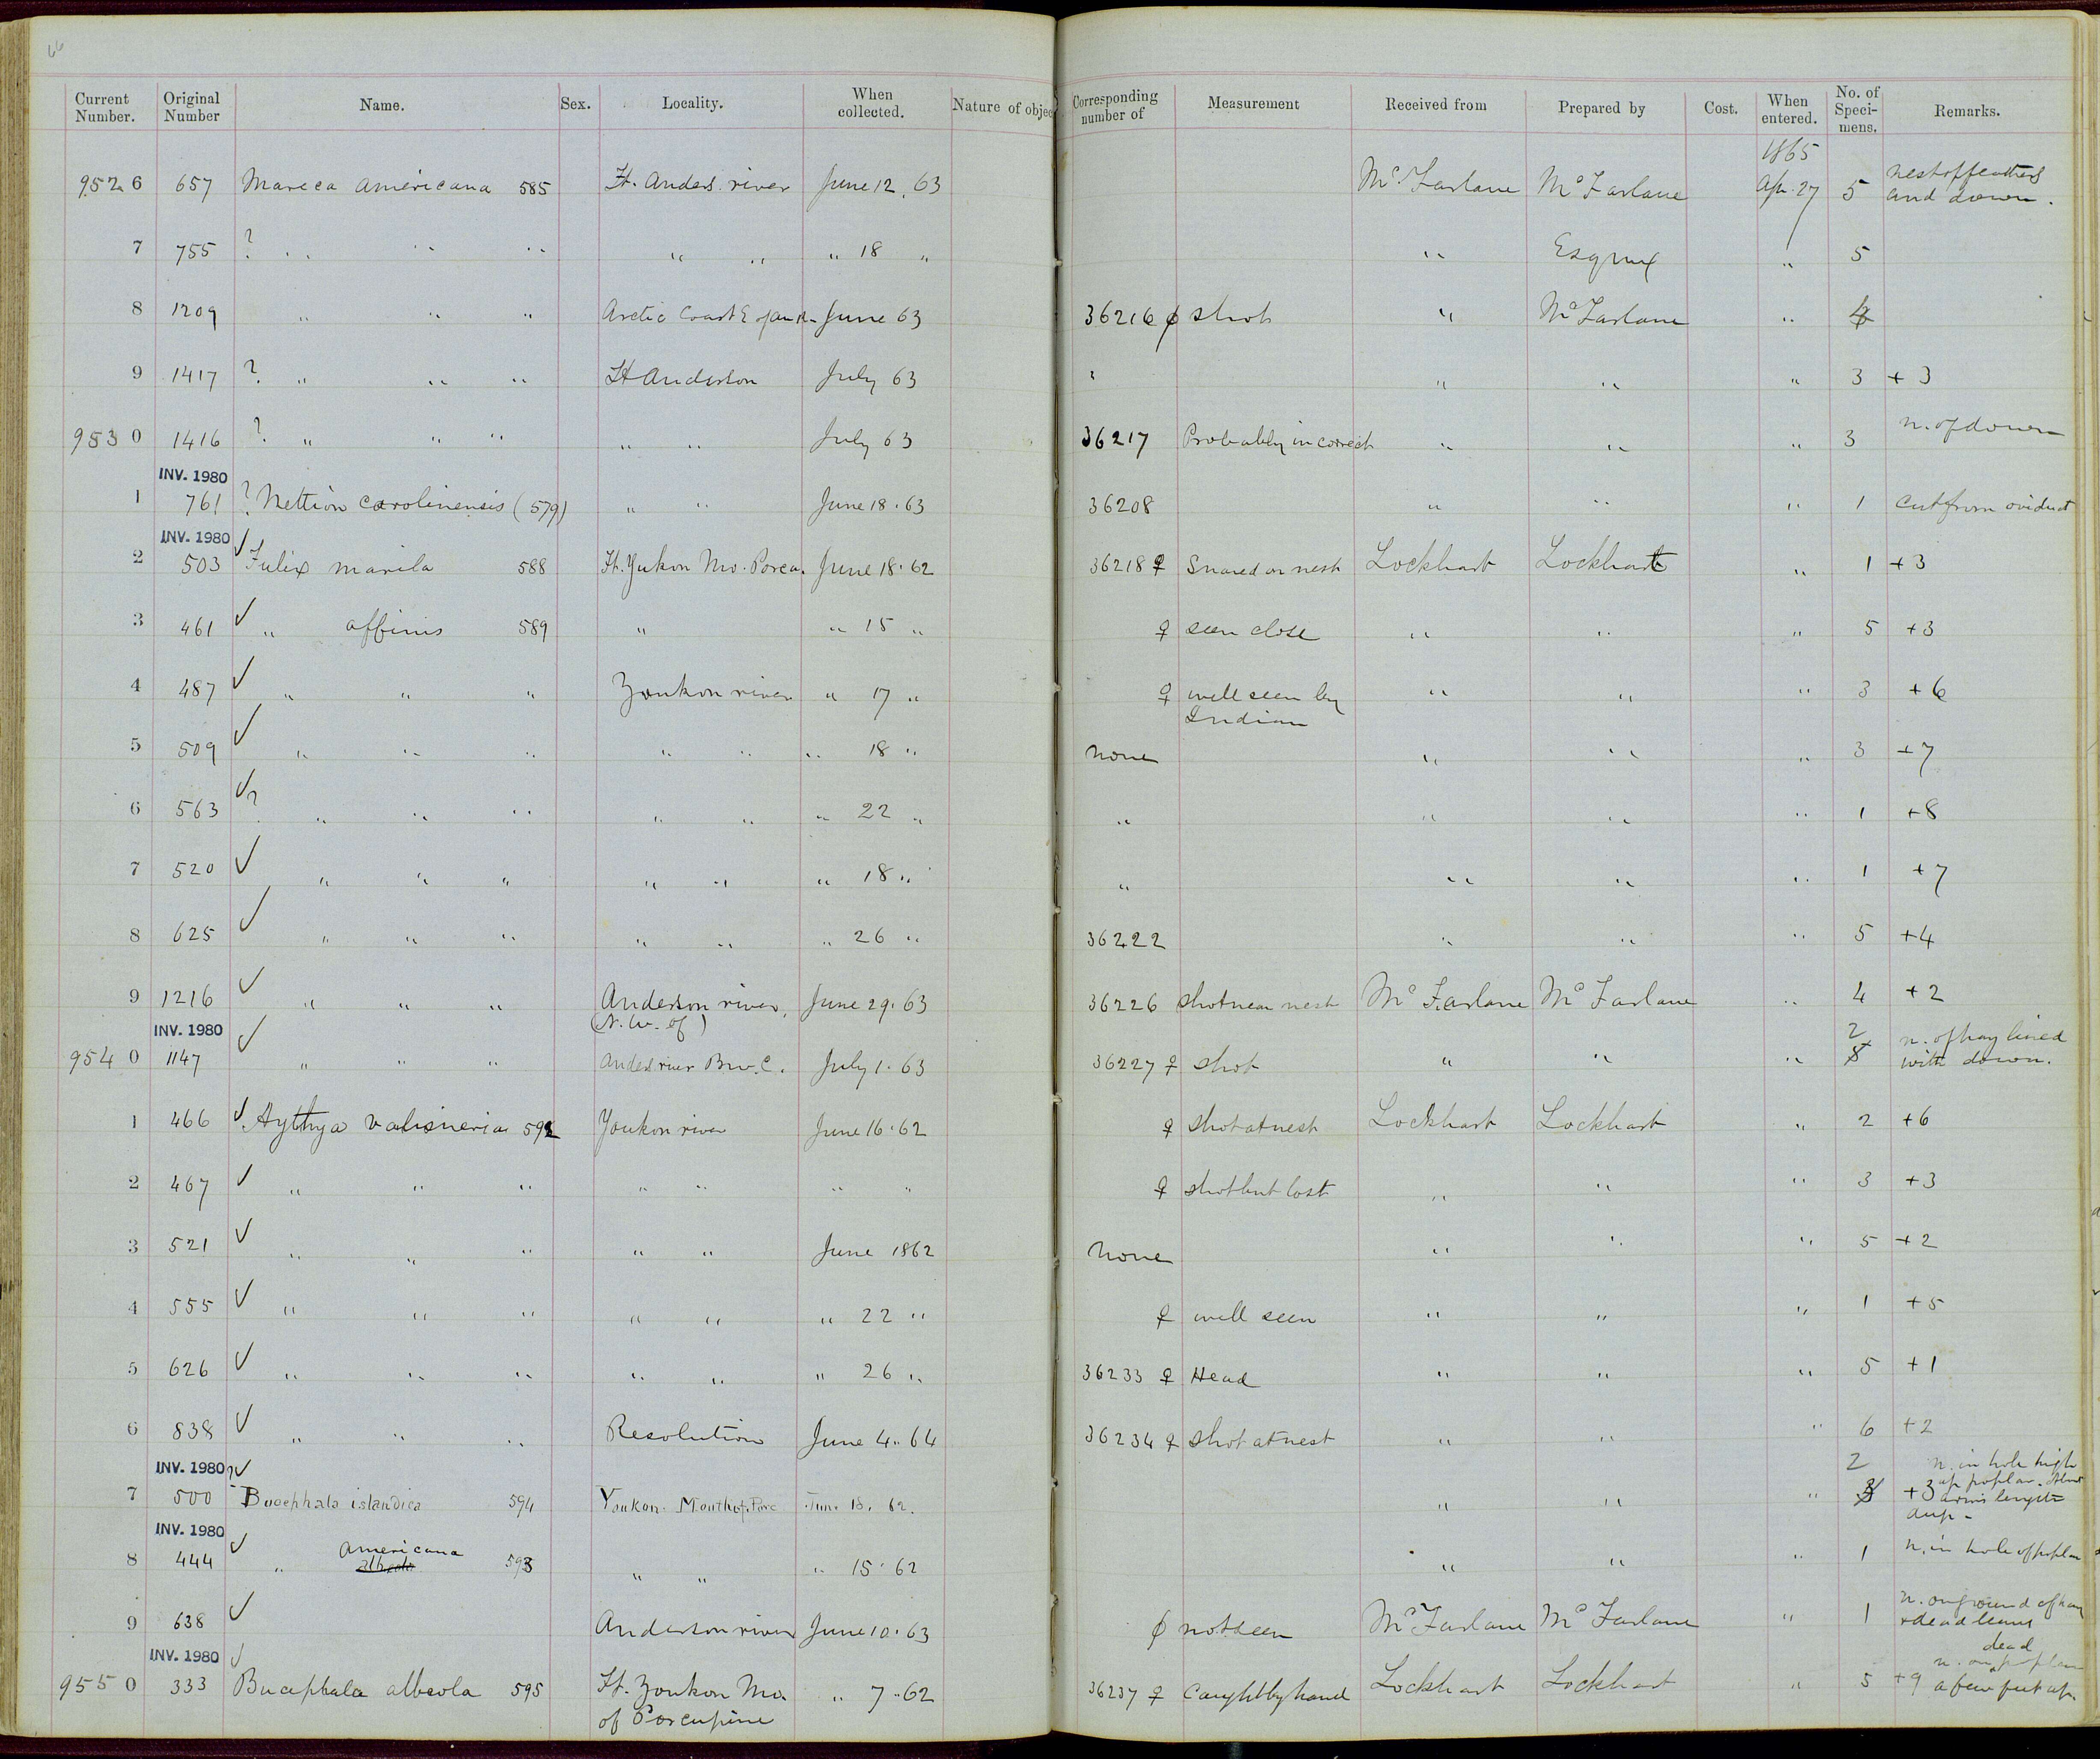 66
Current Number. Original Number Name. Sex. Locality. When collected. Nature of objec Corresponding number of Measurement Received from Prepared by Cost. When entered. No. of Speci- mens. Remarks.
9526 657 Mareca americana 585 Ft. Anders. river June 12. 63 Mc.Farlane McFarlane 1865 Apr. 27 5 nest of feathers and down.
7 755 ? " " " " " " 18 " " Esqmx " 5
8 1209 " " " Arctic Coast E of June 63 36216 shot " McFarlane " 4
9 1417 ? " " " Ft Anderson July 63 " " " " 3 + 3
9530 1416 ? " " " " " July 63 36217 Probably incorrect " " " 3 n. of down
INV. 1980
1 761 ? Nettion carolinensis (579) " " June 18. 63 36208 " " " 1 cut from oviduct
INV. 1980
2 503 ✓ Fulix marila 588 Ft. Yukon Mo. Porcu. June 18. 62 36218 ♀ Snared on nest Lockhart Lockhart " 1 + 3
3 461 ✓ " affinis 589 " " 15 " ♀ seen close " " " 5 + 3
4 487 ✓ " " " Youkon river " 17 " ♀ well seen by Indian " " " 3 + 6
5 509 ✓ " " " " " " 18 " none " " " 3 + 7
6 563 ✓? " " " " " " 22 " " " " " 1 + 8
7 520 ✓ " " " " " " 18 " " " " " 1 + 7
8 625 ✓ " " " " " " 26 " 36222 " " " 5 + 4
9 1216 ✓ " " " Anderson river, (N.W. of) June 29. 63 36226 shot near nest McFarlane McFarlane " 4 + 2
INV. 1980
9540 1147 ✓ " " " Anders river July 1. 63 36227 ♀ shot " " " 2 8 n. of hay lined with down.
1 466 ✓ Aythya valisneria 592 Youkon river June 16. 62 ♀ shot at nest Lockhart Lockhart " 2 + 6
2 467 ✓ " " " " " " " ♀ shot but lost " " " 3 + 3
3 521 ✓ " " " " " June 1862 None " " " 5 + 2
4 555 ✓ " " " " " " 22 " ♀ well seen " " " 1 + 5
5 626 ✓ " " " " " " 26 " 36233 ♀ Head " " " 5 + 1
6 838 ✓ " " " Resolution June 4. 64 36234 ♀ shot at nest " " " 6 + 2
INV. 1980
7 500 ?✓ Bucephala islandica 594 Youkon. Mouth of Porc June 18. 62. " " " 2 3 + 3 n. in hole high up poplar. About arms length deep.
INV. 1980
8 444 ✓ " americana albeola 593 " " " 15. 62 " " " 1 n. in hole of poplar
9 638 ✓ Anderson river June 10. 63 not seen McFarlane McFarlane " 1 n. on ground of hay + dead leaves
INV. 1980
9550 333 ✓ Bucephala albeola 595 Ft. Youkon Mo. of Porcupine " 7. 62 36237 ♀ Caught by hand Lockhart Lockhart " 5 + 9 n. on dead poplar a few feet up.